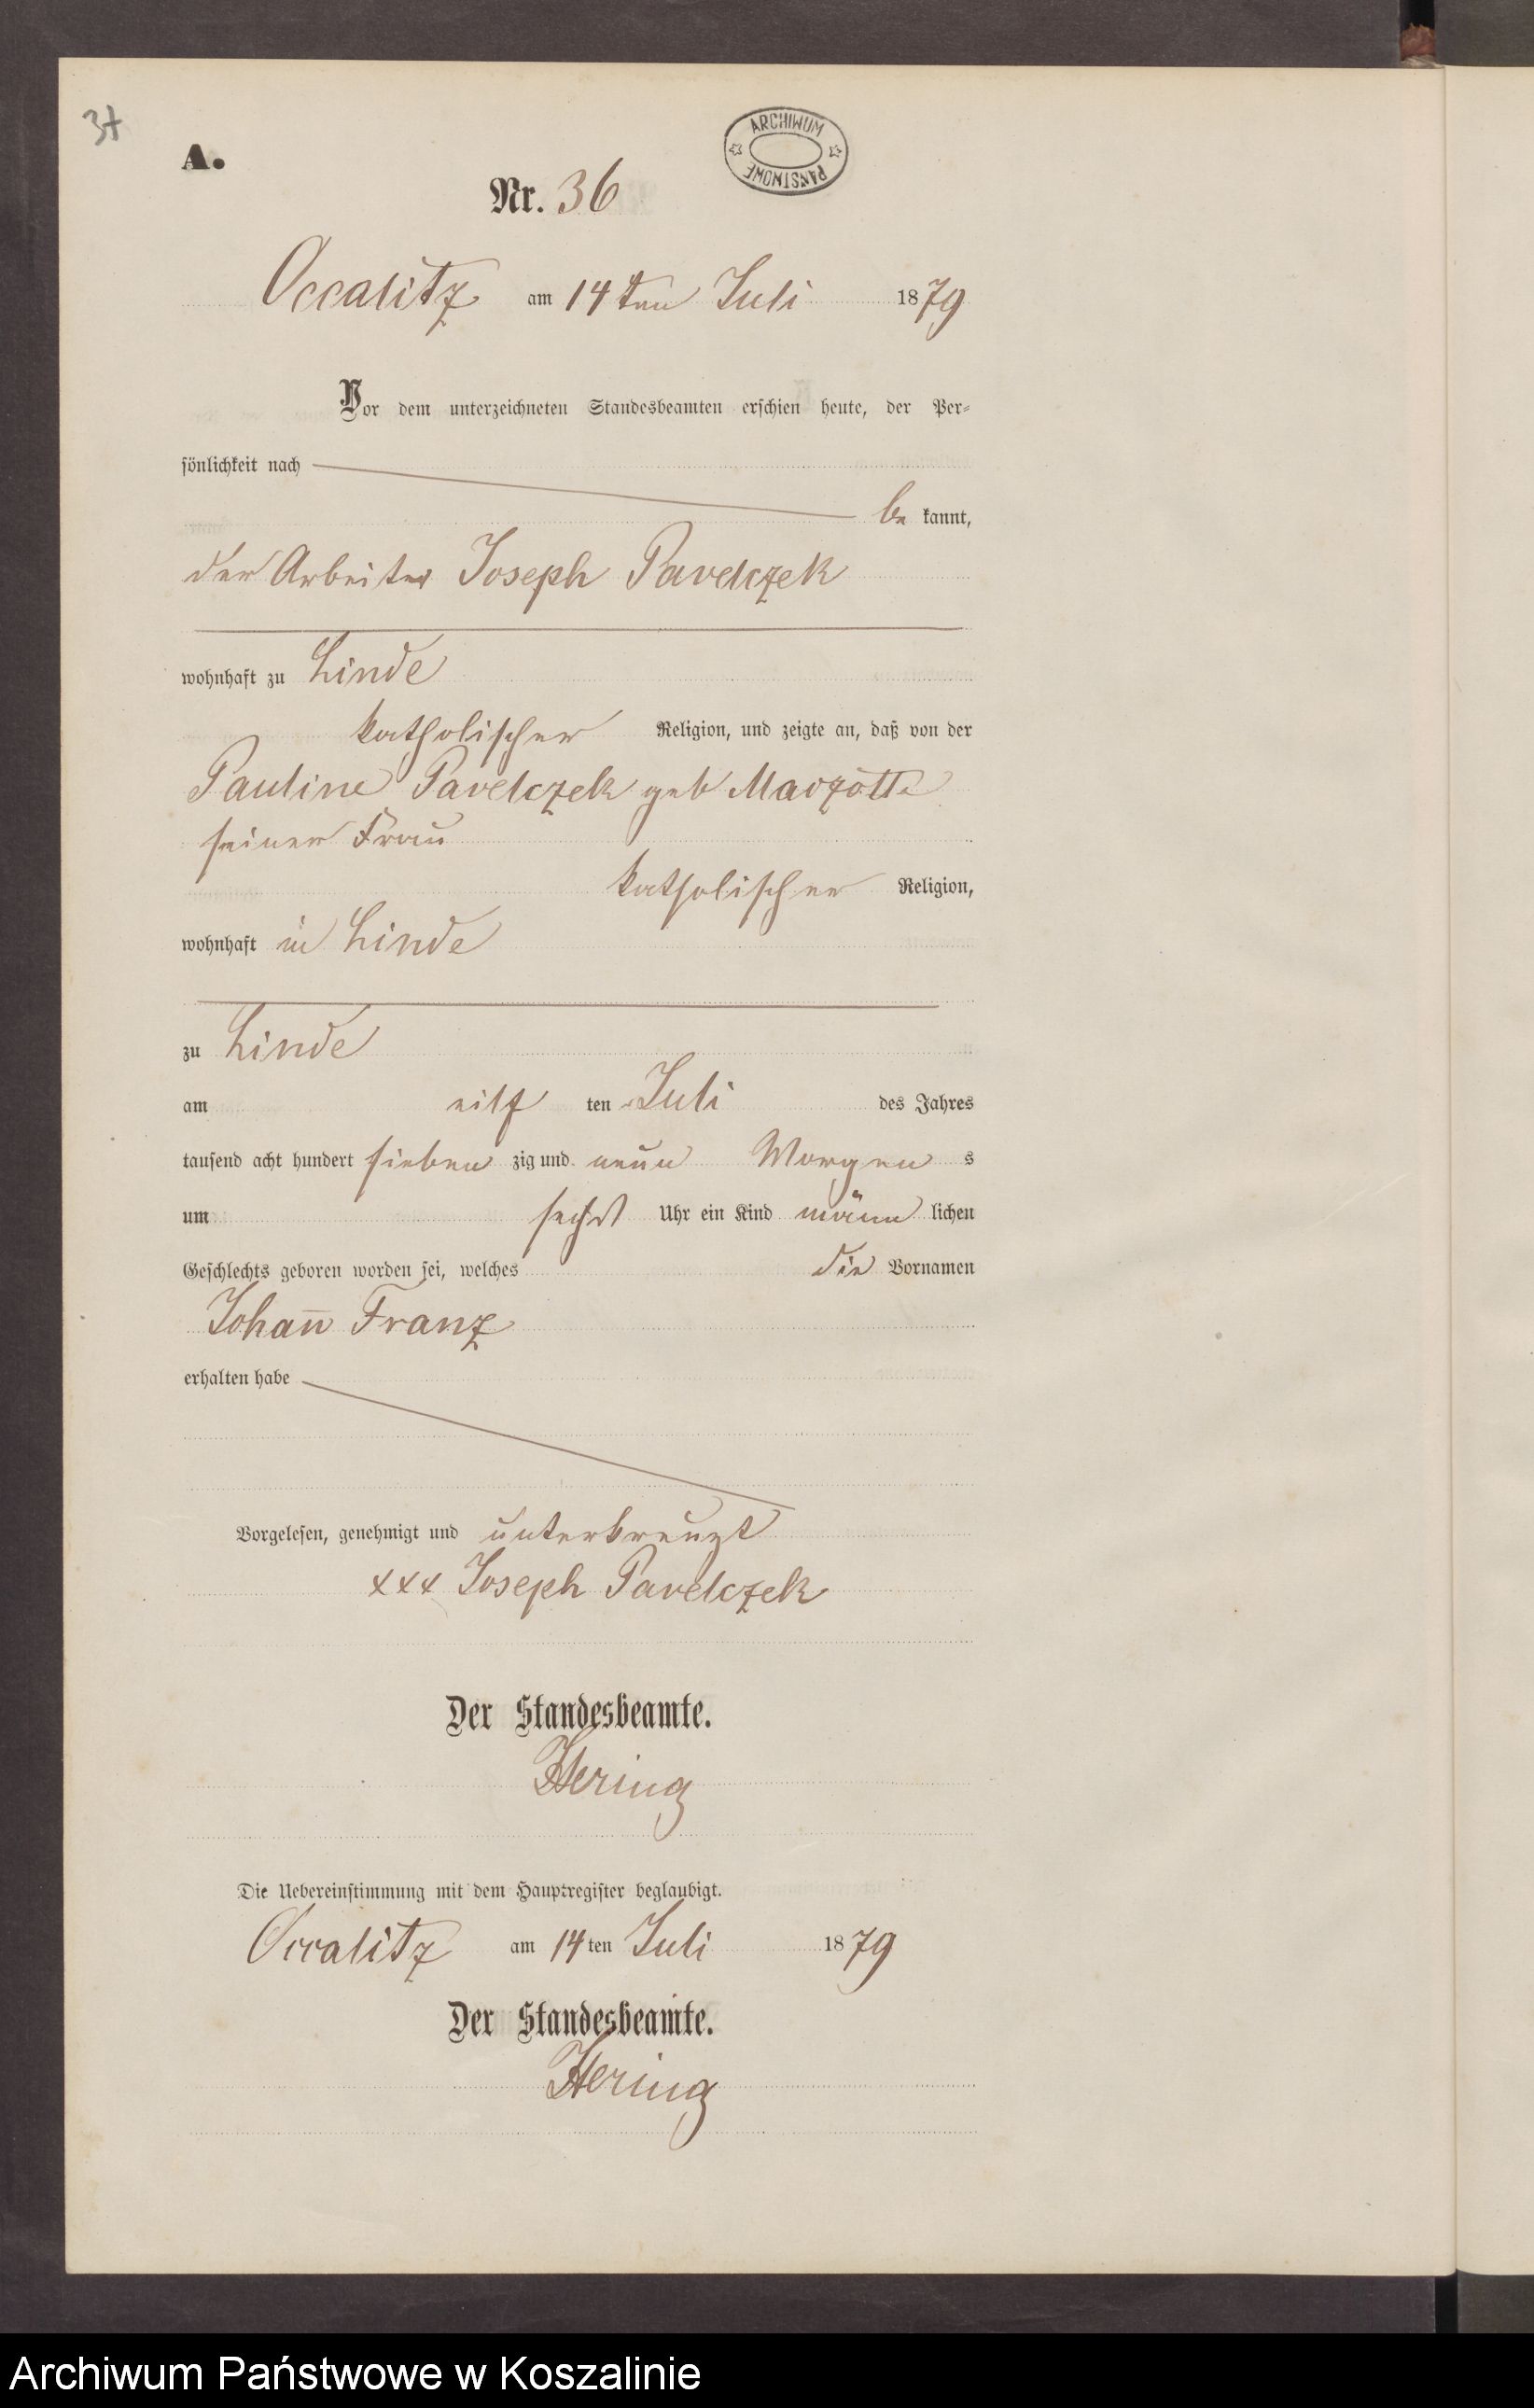 37
A.
ARCHIWUM PAŃSTWOWE
Nr. 36
Occalitz am 14ten Juli 1879
Vor dem unterzeichneten Standesbeamten erschien heute, der Per-
sönlichkeit nach
be kannt,
der Arbeiter Joseph Pavelczek
wohnhaft zu Linde
katholischer Religion, und zeigte an, daß von der
Pauline Pavelczek geb
seiner Frau
katholischer Religion,
wohnhaft in Linde
zu Linde
am eilf ten Juli des Jahres
tausend acht hundert sieben zig und neun Morgen s
um sechs Uhr ein Kind männ lichen
Geschlechts geboren worden sei, welches die Vornamen
Johan̄ Franz
erhalten habe
Vorgelesen, genehmigt und unterkreuzt
xxx Joseph Pavelczek
Der Standesbeamte.
Hering
Die Uebereinstimmung mit dem Hauptregister beglaubigt.
Occalitz am 14ten Juli 1879
Der Standesbeamte.
Hering
Archiwum Państwowe w Koszalinie